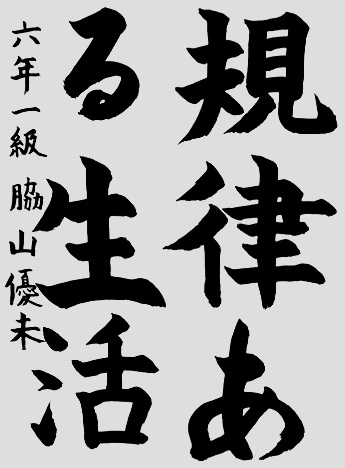 規律あ
る生活
六年一級 脇山優未